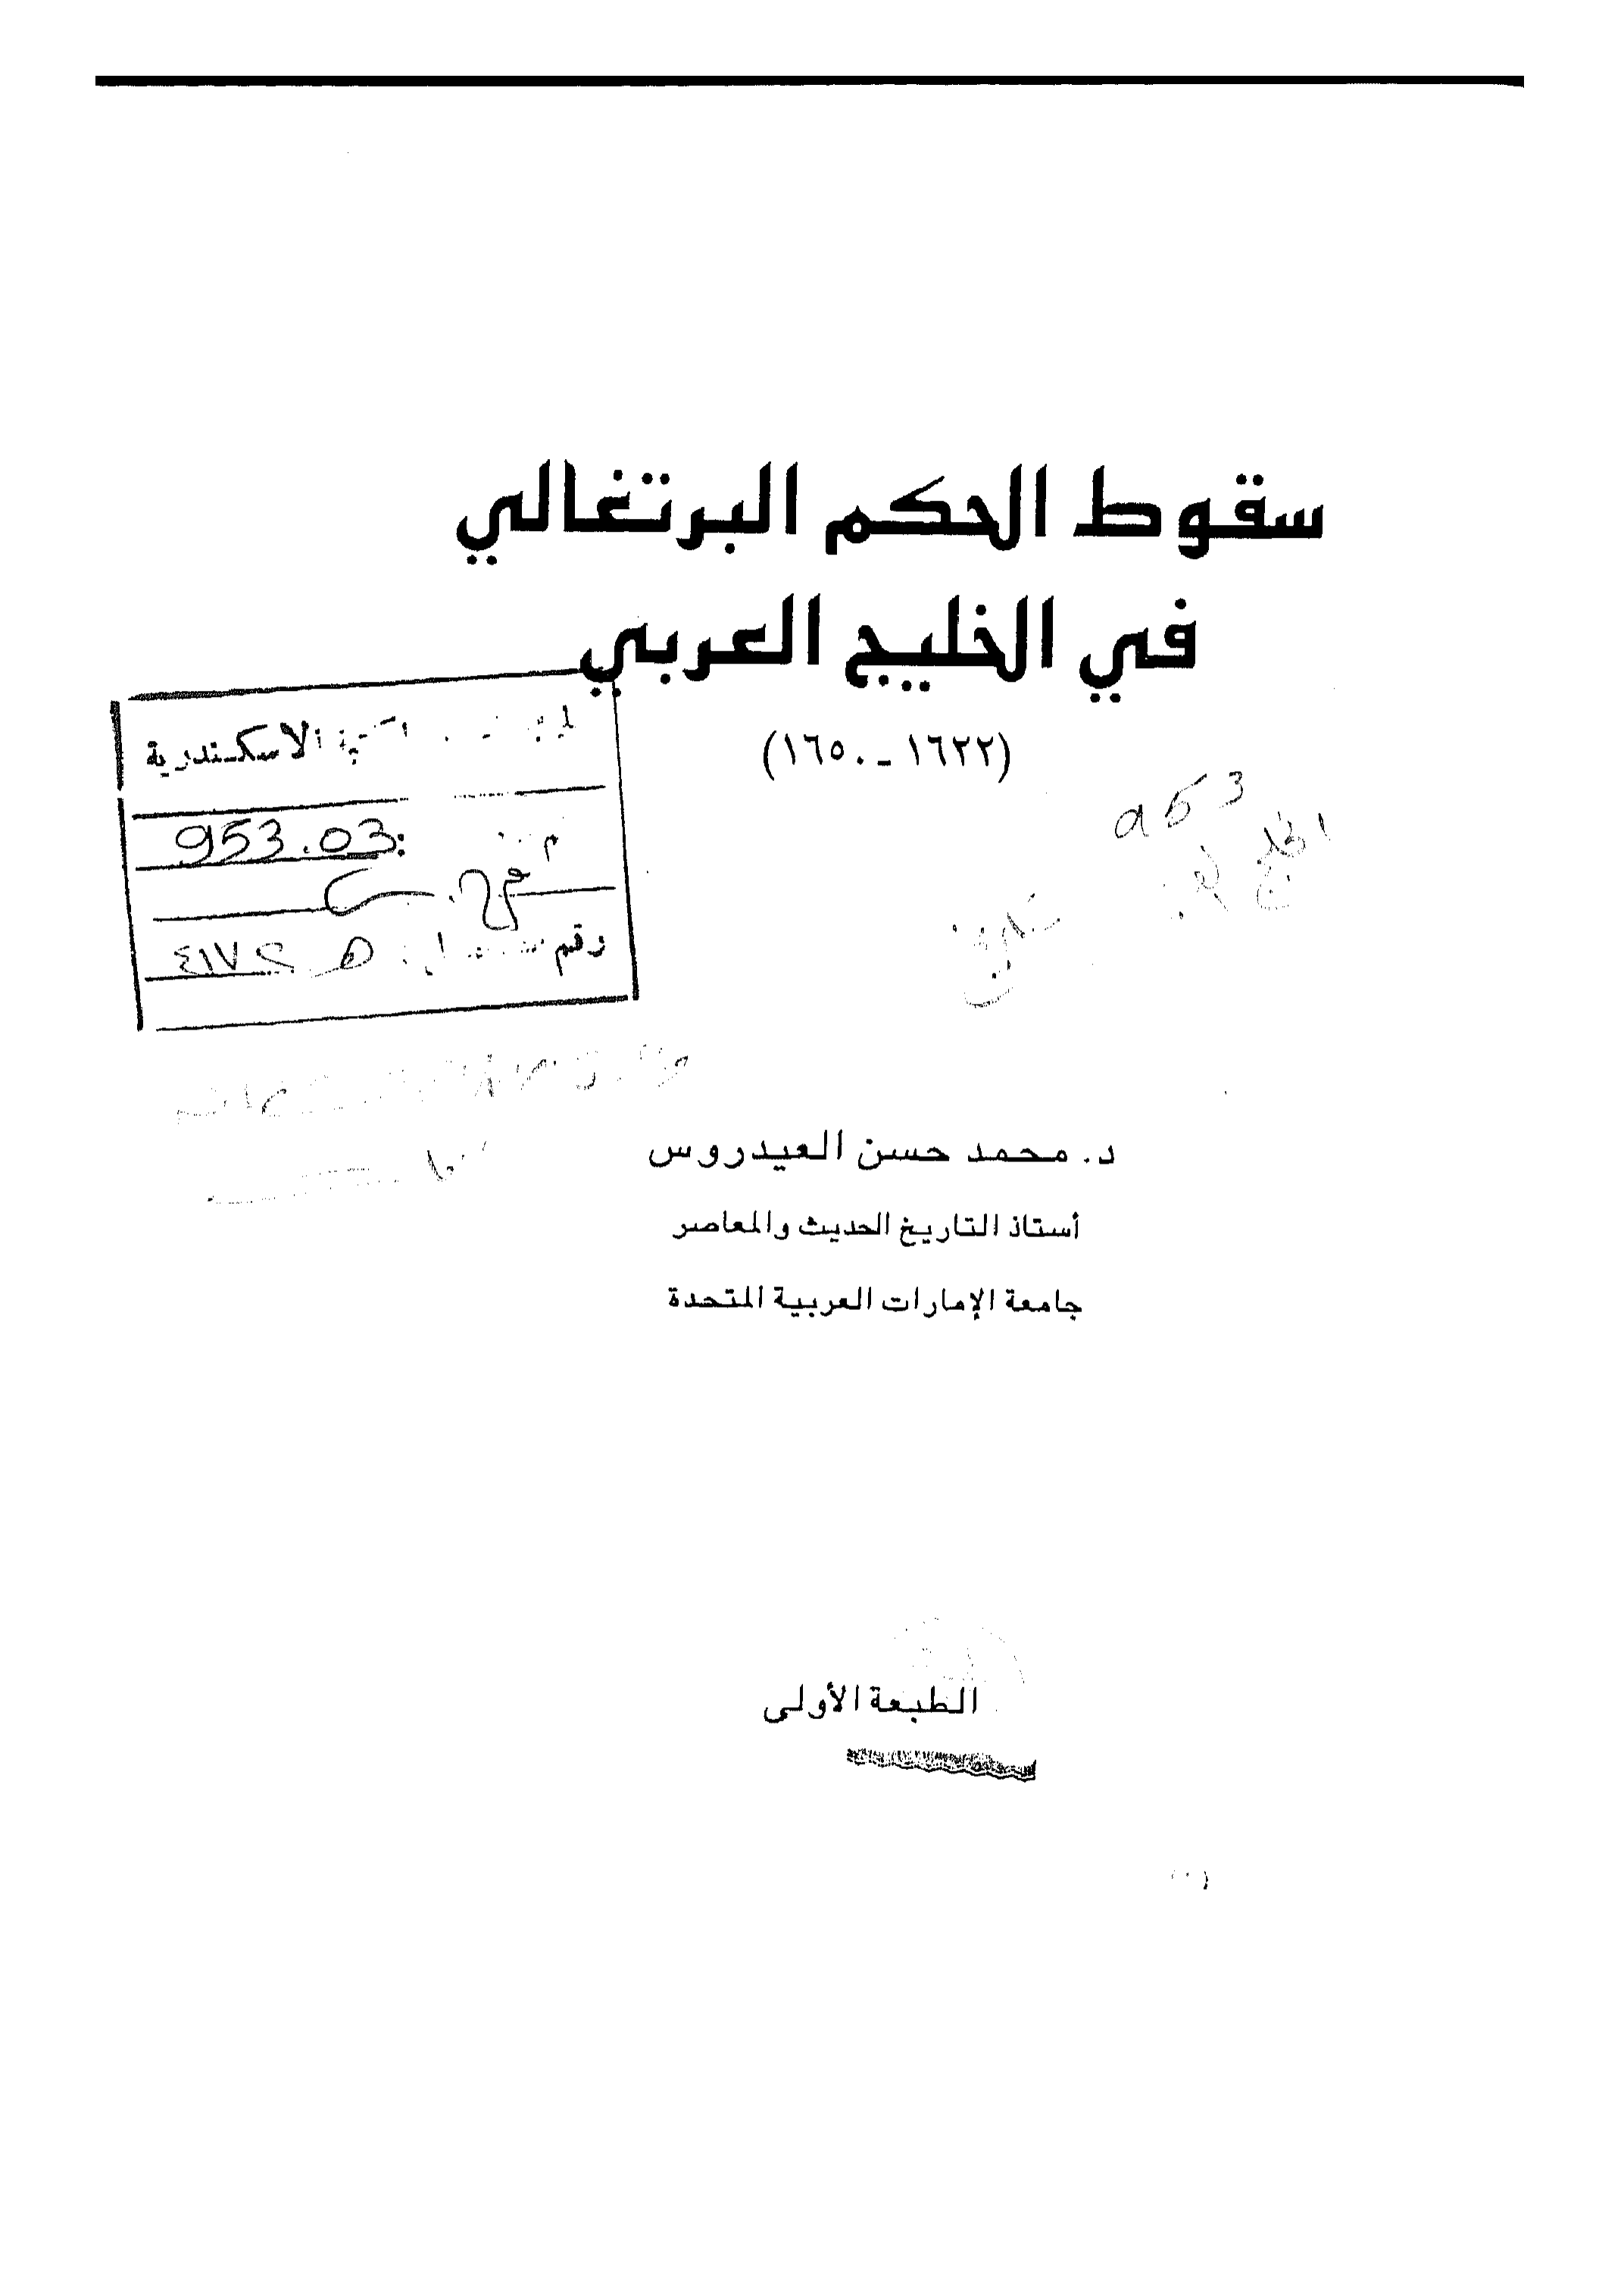 سقوط الحكم البرتغالي
في الخليج العربي
(١٦٢٢ - ١٦٥٠)
الاسكندرية
953.03:
رقم
٤١٧٢
953
الخليج
د. محمد حسن العيدروس
أستاذ التاريخ الحديث والمعاصر
جامعة الإمارات العربية المتحدة
الطبعة الأولى